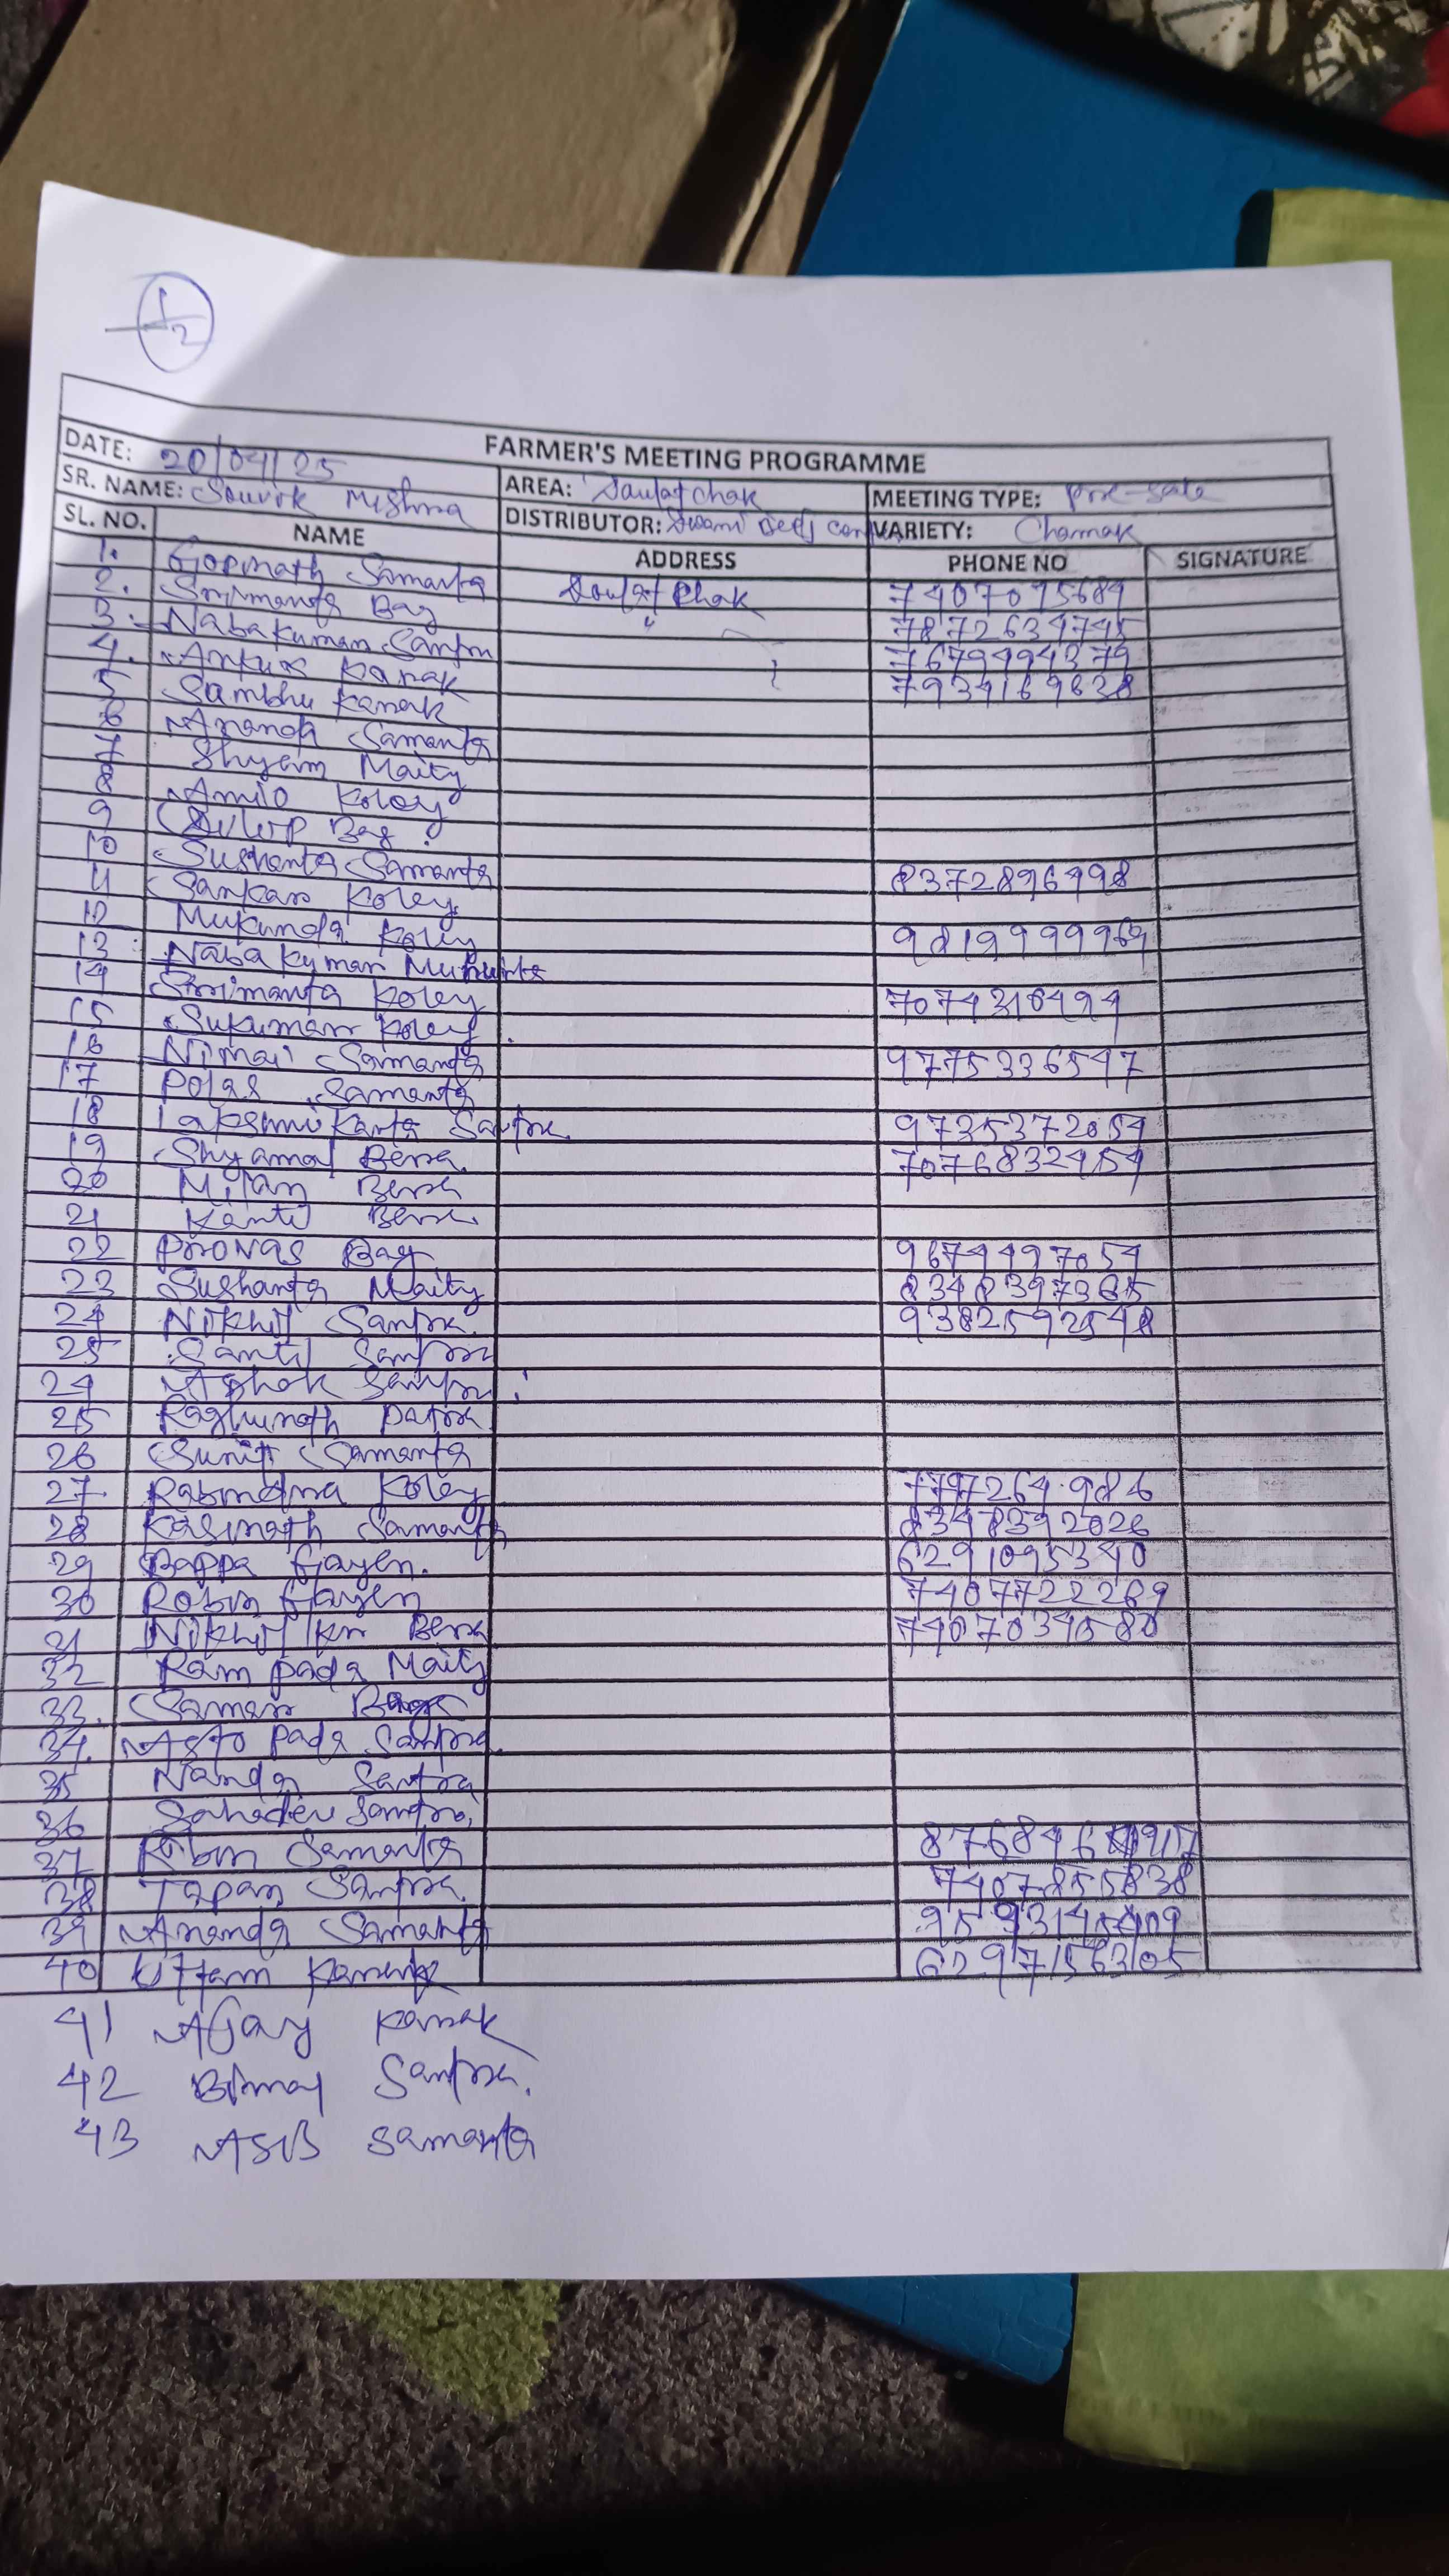 1/2
FARMER'S MEETING PROGRAMME
DATE: 20/04/25
AREA: Daulatchak
MEETING TYPE: Pre-sale
SR. NAME: Souvik Mishra
DISTRIBUTOR: Swami
VARIETY: Chamak
SL. NO. NAME ADDRESS PHONE NO SIGNATURE
1. Gopinath Samanta Doulat Chak 7407095689
2. Srimanta Bag " 7872634745
3. Nabakumar Santra 7679494379
4. Ankur Kanak 7934169638
5 Sambhu Kanak
6 Ananda Samanta
7 Shyam Maity
8 Koley
9 Bag
10 Sushanta Samanta 8372896998
11 Sankar Koley
12 Mukunda Koley
13 Nabakumar
14 Srimanta Koley 7074316494
15 Sukumar Koley
16 Nimai Samanta 9775336547
17 Polas Samanta
18 Laksmikanta Santra 9735372054
19 Shyamal Bera 7076832454
20 Milan Bera
21 Kanti Bera
22 Pronas Bag 9674497054
23 Sushanta Maity 8348397365
24 Nikhil Santra 9382592548
25 Santi Santra
24 Ashok Santra
25 Raghunath Patra
26 Sunil Samanta
27 Rabindra Koley 7797264986
28 Kasinath Samanta 8348392026
29 Bappa Gayen. 6291095340
30 Robin Gayen 7407722269
31 Nikhil Kr Bera 7407034580
32 Ram pada Maity
33. Samar
34. Asto pada Santra.
35 Nanda Santra
36 Sahadev Santra
37 Robin Samanta
38 Tapan Santra. 7407855838
39 Ananda Samanta
40 Uttam Kanak 6297156305
41 Ajay Kanak
42 Bimal Santra.
43 Asit Samanta